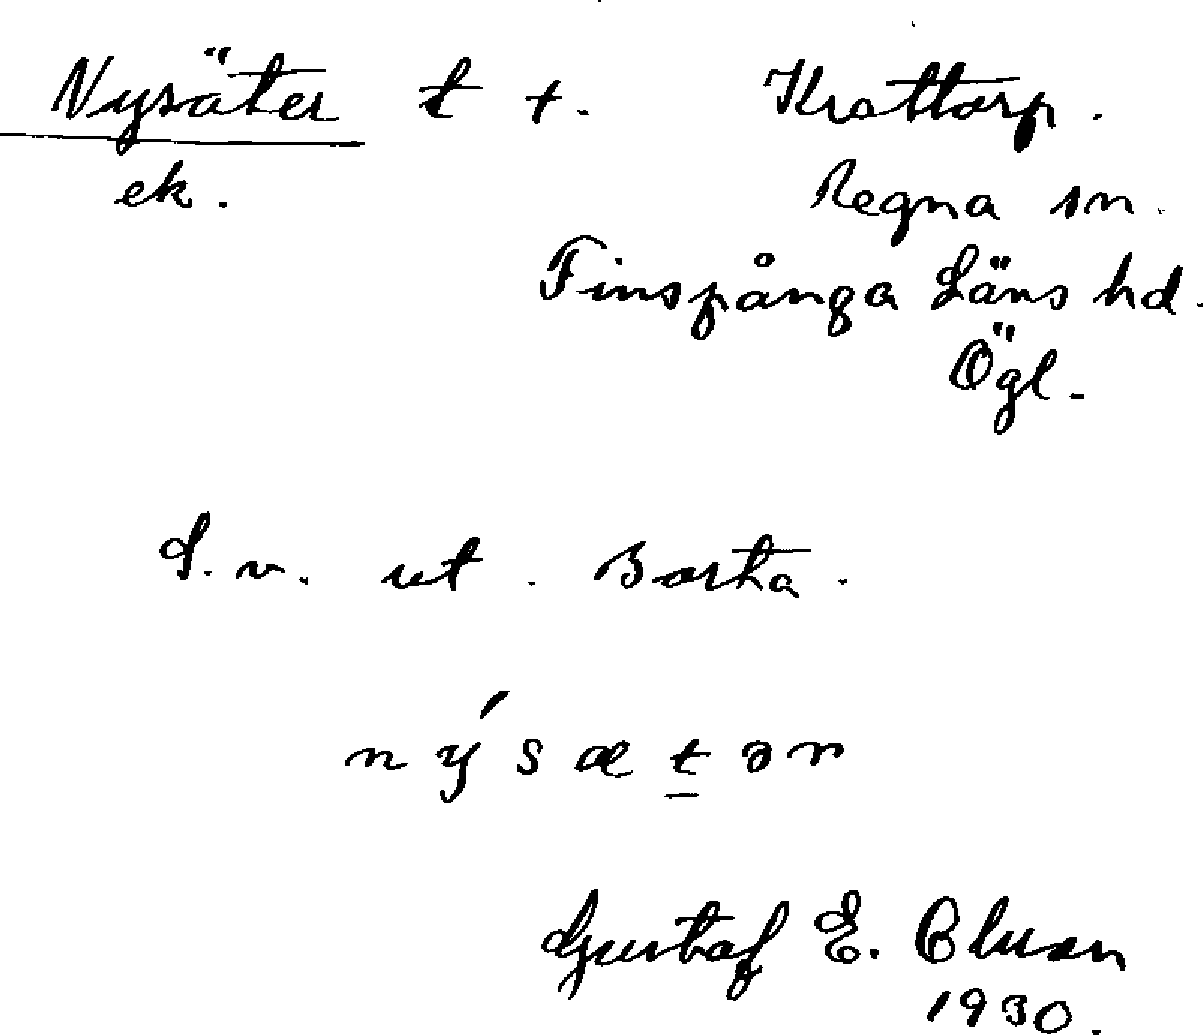 Nysäter t +. Krattorp.
ek. Regna sn.
Finspånga Läns hd.
Ögl.
S. v. ut. Borta.
nýsætər
Gustaf E. Cluson
1930.